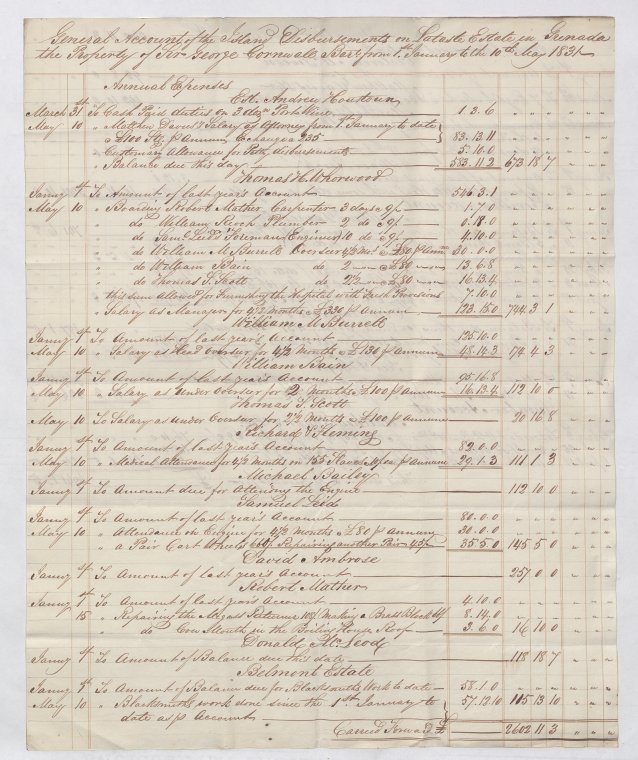 General Account of the Island Disbursements on Lataste Estate in Grenada
the Property of Sir George Cornwall Bart from 1st January to the 10th May 1831
Annual Expenses
Est. Andrew Houstoun
March 31st To Cash Paid duties on 3 doz Port Wine 1.3.6
May 10 " Mathew Davies's Salary as Attorney from 1st January to date
@ £100 Stg p Annum Exchange 235 83.13.11
" Customary Allowance for Petty disbursements 5.16.0
" Balance due this day 583.11.2 673 18 7
Thomas H. Whorwood
Janry 1st To Amount of last year's Account 546.3.1
May 10 " Boarding Robert Mather Carpenter 3 days @ 9/- 1.7.0
" do William Plumber 2 do @ 9/- 0.18.0
" do Saml Leid Foreman (Engineer) 10 do @ 9/- 4.10.0
" do William M. Burnett Overseer 4 1/2 Mos @ £80 p Annm 30.0.0
" do William Bain do 2 @ £80 13.6.8
" do Thomas T. Scott do 2 1/2 @ £80 16.13.4
" this sum Allowed for Furnishing the Hospital with Fresh Provisions 7.10.0
" Salary as Manager for 4 1/2 Months @ £330 p Annum 123.15.0 744 3 1
William M. Burnett
Janry 1st To Amount of last year's Account 125.10.0
May 10 " Salary as Head Overseer for 4 1/2 Months @ £130 p Annum 48.14.3 174 4 3
William Bain
Janry 1st To Amount of last year's Account 95.16.8
May 10 " Salary as Under Overseer for 2 Months @ £100 p Annum 16.13.4 112 10 0
Thomas T. Scott
May 10 To Salary as Under Overseer for 2 1/2 Months @ £100 p Annum 20 16 8
Richard Fleming
Janry 1st To Amount of last year's Account 82.0.0
May 10 " Medical Attendance for 4 1/2 Months on 155 Slaves p Annum 29.1.3 111 1 3
Michael Bailey
Janry 1st To Amount due for Attending the Engine 112 10 0
Samuel Leid
Janry 1st To Amount of last year's Account 80.0.0
May 10 " Attendance on Engine for 4 1/2 Months @ £80 p Annum 30.0.0
" a Pair Cart Wheels Repairing another Pair 35.5.0 145 5 0
David Ambrose
Janry 1st To Amount of last year's Account 257 0 0
Robert Mather
Janry 1st To Amount of last year's Account 4.10.0
" 15 " Repairing the Making a Brass Block 8.14.0
" do Cow Mouth in the Boiling House Roof 3.6.0 16 10 0
Donald McLeod
Janry 1st To Amount of Balance due this date 118 18 7
Belmont Estate
Janry 1st To Amount of Balance due for Blacksmith's Work to date 58.1.0
May 10 " Blacksmith's work done since the 1st January to 57.12.10 115 13 10
date as p Account
Carried Forward £ 2602 11 3